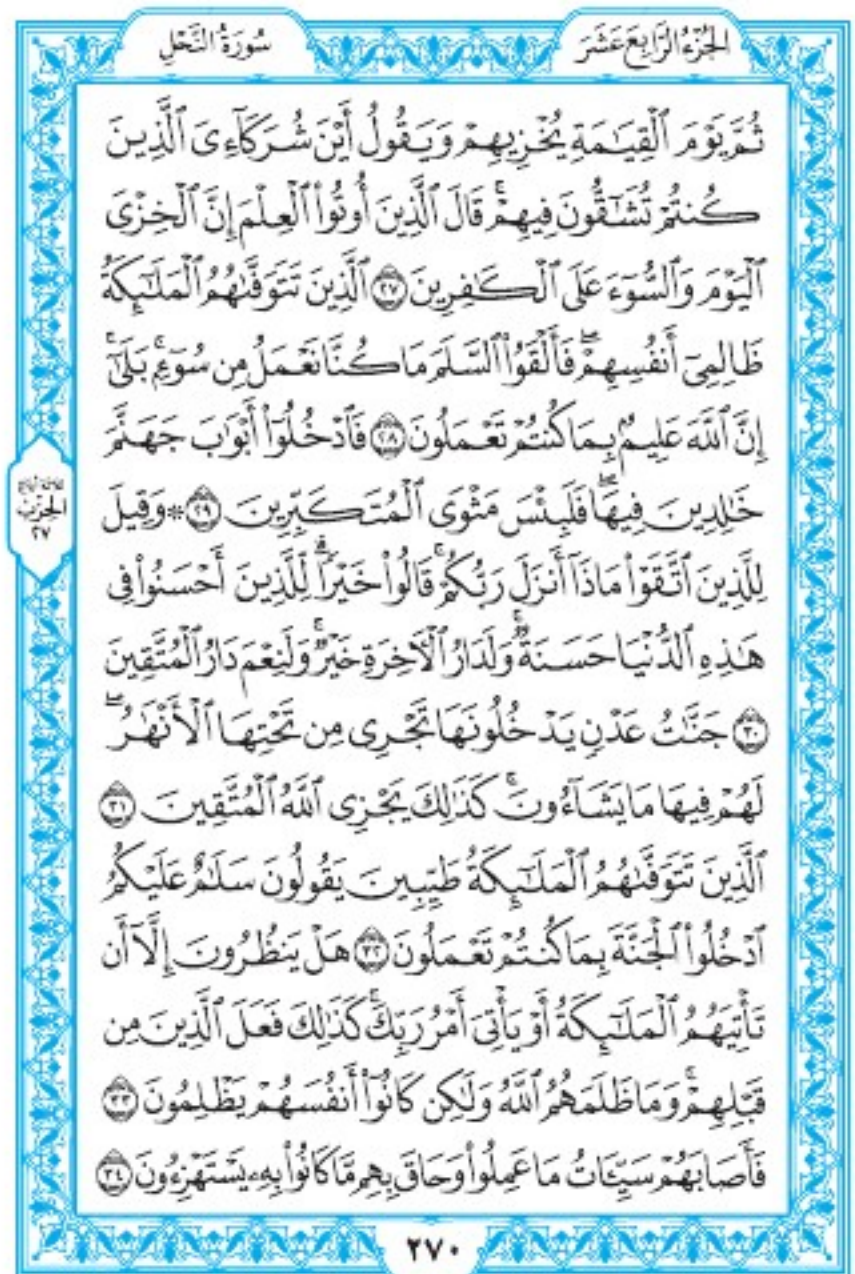 الجُزْءُ الرَّابِعَ عَشَرَ
سُورَةُ النَّحْلِ
ثُمَّ يَوْمَ ٱلْقِيَـٰمَةِ يُخْزِيهِمْ وَيَقُولُ أَيْنَ شُرَكَآءِىَ ٱلَّذِينَ
كُنتُمْ تُشَـٰٓقُّونَ فِيهِمْ ۚ قَالَ ٱلَّذِينَ أُوتُوا۟ ٱلْعِلْمَ إِنَّ ٱلْخِزْىَ
ٱلْيَوْمَ وَٱلسُّوٓءَ عَلَى ٱلْكَـٰفِرِينَ ٢٧ ٱلَّذِينَ تَتَوَفَّىٰهُمُ ٱلْمَلَـٰٓئِكَةُ
ظَالِمِىٓ أَنفُسِهِمْ ۖ فَأَلْقَوُا۟ ٱلسَّلَمَ مَا كُنَّا نَعْمَلُ مِن سُوٓءٍۭ ۚ بَلَىٰٓ ۚ
إِنَّ ٱللَّهَ عَلِيمٌۢ بِمَا كُنتُمْ تَعْمَلُونَ ٢٨ فَٱدْخُلُوٓا۟ أَبْوَٰبَ جَهَنَّمَ
خَـٰلِدِينَ فِيهَا ۖ فَلَبِئْسَ مَثْوَى ٱلْمُتَكَبِّرِينَ ٢٩ ۞ وَقِيلَ
لِلَّذِينَ ٱتَّقَوْا۟ مَاذَآ أَنزَلَ رَبُّكُمْ ۚ قَالُوا۟ خَيْرًا ۗ لِّلَّذِينَ أَحْسَنُوا۟ فِى
هَـٰذِهِ ٱلدُّنْيَا حَسَنَةٌ ۚ وَلَدَارُ ٱلْـَٔاخِرَةِ خَيْرٌ ۚ وَلَنِعْمَ دَارُ ٱلْمُتَّقِينَ
٣٠ جَنَّـٰتُ عَدْنٍ يَدْخُلُونَهَا تَجْرِى مِن تَحْتِهَا ٱلْأَنْهَـٰرُ ۖ
لَهُمْ فِيهَا مَا يَشَآءُونَ ۚ كَذَٰلِكَ يَجْزِى ٱللَّهُ ٱلْمُتَّقِينَ ٣١
ٱلَّذِينَ تَتَوَفَّىٰهُمُ ٱلْمَلَـٰٓئِكَةُ طَيِّبِينَ ۙ يَقُولُونَ سَلَـٰمٌ عَلَيْكُمُ
ٱدْخُلُوا۟ ٱلْجَنَّةَ بِمَا كُنتُمْ تَعْمَلُونَ ٣٢ هَلْ يَنظُرُونَ إِلَّآ أَن
تَأْتِيَهُمُ ٱلْمَلَـٰٓئِكَةُ أَوْ يَأْتِىَ أَمْرُ رَبِّكَ ۚ كَذَٰلِكَ فَعَلَ ٱلَّذِينَ مِن
قَبْلِهِمْ ۚ وَمَا ظَلَمَهُمُ ٱللَّهُ وَلَـٰكِن كَانُوٓا۟ أَنفُسَهُمْ يَظْلِمُونَ ٣٣
فَأَصَابَهُمْ سَيِّـَٔاتُ مَا عَمِلُوا۟ وَحَاقَ بِهِم مَّا كَانُوا۟ بِهِۦ يَسْتَهْزِءُونَ ٣٤
الحِزْبُ
٢٧
٢٧٠